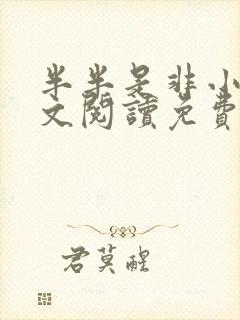 半半是非小
文閱讀免費
君莫醒